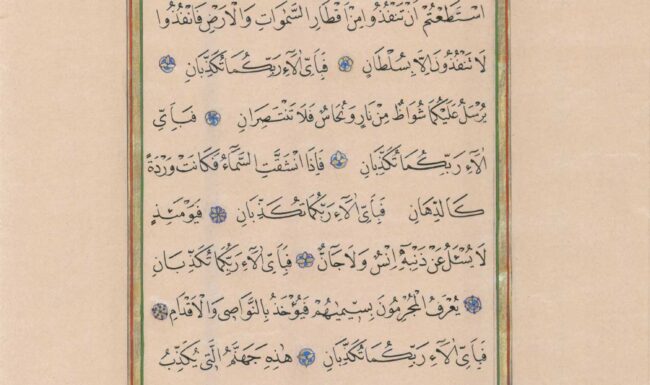 اسْتَطَعْتُمْ اَنْ تَنْفُذُوا مِنْ اَقْطَارِ السَّمٰوَاتِ وَالْاَرْضِ فَانْفُذُوا
لَا تَنْفُذُونَ اِلَّا بِسُلْطَانٍ فَبِاَىِّ اٰلَاۤءِ رَبِّكُمَا تُكَذِّبَانِ
يُرْسَلُ عَلَيْكُمَا شُوَاظٌ مِنْ نَارٍ وَنُحَاسٌ فَلَا تَنْتَصِرَانِ فَبِاَىِّ
اٰلَاۤءِ رَبِّكُمَا تُكَذِّبَانِ فَاِذَا انْشَقَّتِ السَّمَاۤءُ فَكَانَتْ وَرْدَةً
كَالدِّهَانِ فَبِاَىِّ اٰلَاۤءِ رَبِّكُمَا تُكَذِّبَانِ فَيَوْمَئِذٍ
لَا يُسْـَٔلُ عَنْ ذَنْبِهٖۤ اِنْسٌ وَلَا جَاۤنٌّ فَبِاَىِّ اٰلَاۤءِ رَبِّكُمَا تُكَذِّبَانِ
يُعْرَفُ الْمُجْرِمُونَ بِسِيمٰيهُمْ فَيُؤْخَذُ بِالنَّوَاصِى وَالْاَقْدَامِ
فَبِاَىِّ اٰلَاۤءِ رَبِّكُمَا تُكَذِّبَانِ هٰذِهٖ جَهَنَّمُ الَّتِى يُكَذِّبُ